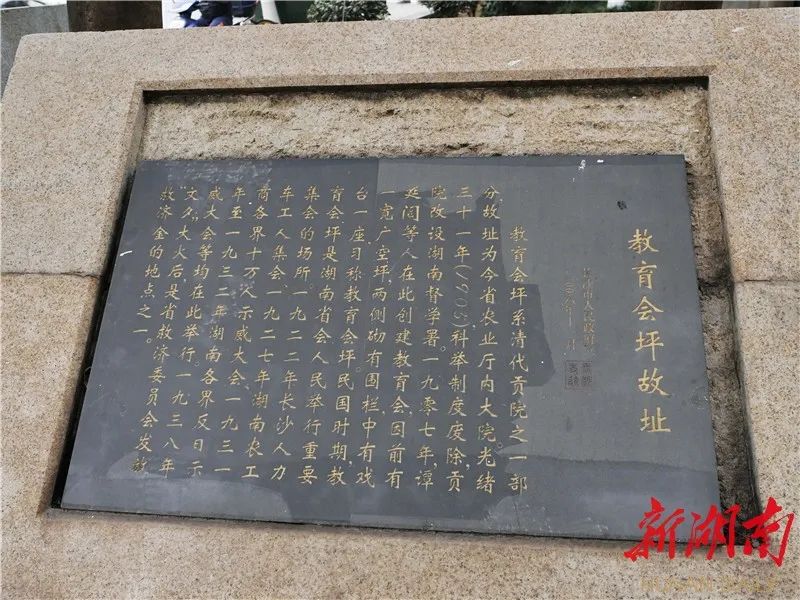 教育会坪故址
长沙市人民政府
教育会坪系清代贡院之一部
分故址为今省农业厅内大院。光绪
三十一年(1905)科举制度废除,贡
院改设湖南督学署。一九零七年,谭
延闿等人在此创建教育会,因前有
一宽广空坪,两侧砌有围栏中有戏
台一座习称教育会坪。民国时期,教
育会坪是湖南省会人民举行重要
集会的场所。一九二二年长沙人力
车工人集会、一九二七年湖南农工
商各界十万人示威大会、一九三一
年至一九三二年湖南各界反日示
威大会等均在此举行。一九三八年
“文夕”大火后,是省救济委员会发放
救济金的地点之一。
新湖南